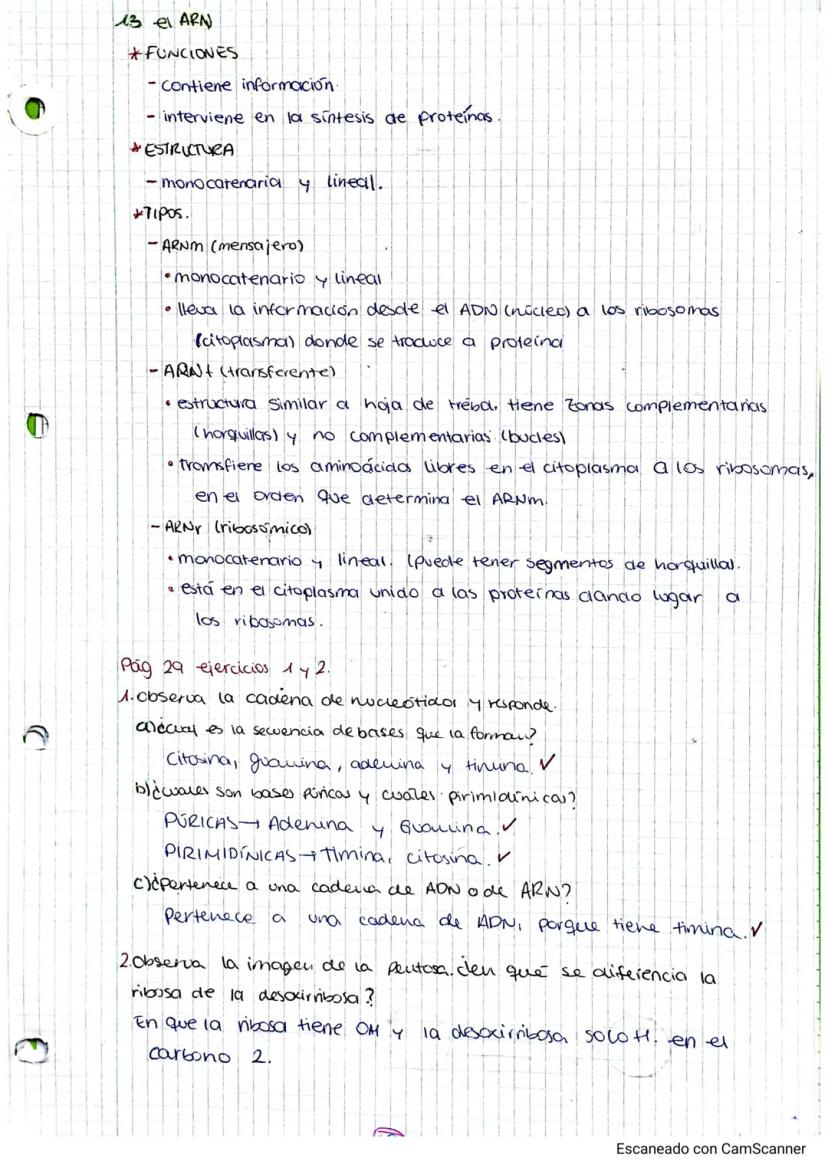 1.3 el ARN
* FUNCIONES
- contiene información.
- interviene en la síntesis de proteínas.
* ESTRUCTURA
- monocatenaria y lineal.
* TIPOS.
- ARNm (mensajero)
• monocatenario y lineal
• lleva la información desde el ADN (núcleo) a los ribosomas
(citoplasma) donde se traduce a proteína
- ARNt (transferente)
• estructura similar a hoja de treba, tiene zonas complementarias
(horquillas) y no complementarias (bucles)
• transfiere los aminoácidos libres en el citoplasma a los ribosomas,
en el orden que determina el ARNm.
- ARNr (ribosómico)
• monocatenario y lineal. (puede tener segmentos de horquilla).
• está en el citoplasma unido a las proteínas dando lugar a
los ribosomas.
Pág 29 ejercicios 1 y 2.
1. Observa la cadena de nucleótidos y responde.
a) ¿cual es la secuencia de bases que la forman?
Citosina, guanina, adenina y timina. ✓
b) ¿cuales son bases púricas y cuales pirimidínicas?
PÚRICAS → Adenina y Guanina. ✓
PIRIMIDÍNICAS → Timina, citosina. ✓
c) ¿Pertenece a una cadena de ADN o de ARN?
Pertenece a una cadena de ADN, porque tiene timina. ✓
2. Observa la imagen de la pentosa. ¿en qué se diferencia la
ribosa de la desoxirribosa?
En que la ribosa tiene OH y la desoxirribosa solo H. en el
carbono 2.
Escaneado con CamScanner